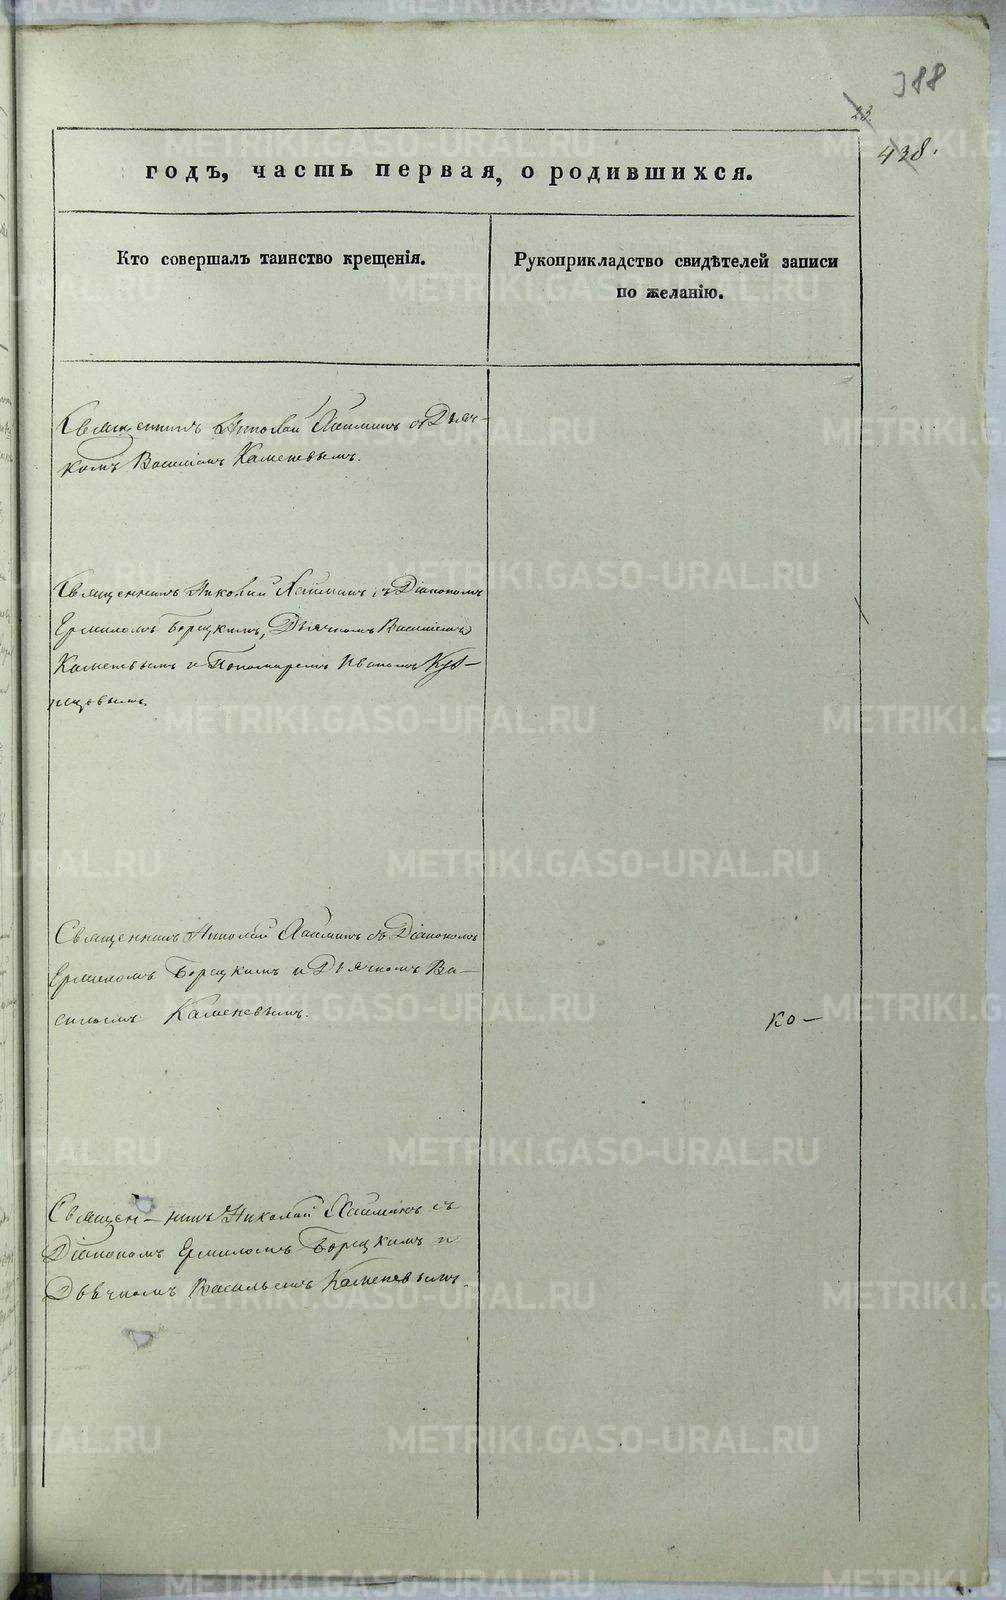 388
23.
438.
годъ, часть первая, о родившихся.
Кто совершалъ таинство крещенія.
Рукоприкладство свидѣтелей записи
по желанію.
Священникъ Николай съ Дьяч-
комъ Василіемъ Каменевымъ.
Священникъ Николай съ Діакономъ
Ермиломъ Борецкимъ, Дьячкомъ Василіемъ
Каменевымъ и Пономаремъ Иваномъ
Священникъ Николай съ Діакономъ
Ермиломъ Борецкимъ и Дьячкомъ Ва-
силіемъ Каменевымъ.
ко-
Священ-никъ Николай съ
Діакономъ Ермиломъ Борецкимъ и
Дьячкомъ Васильемъ Каменевымъ.
METRIKI.GASO-URAL.RU